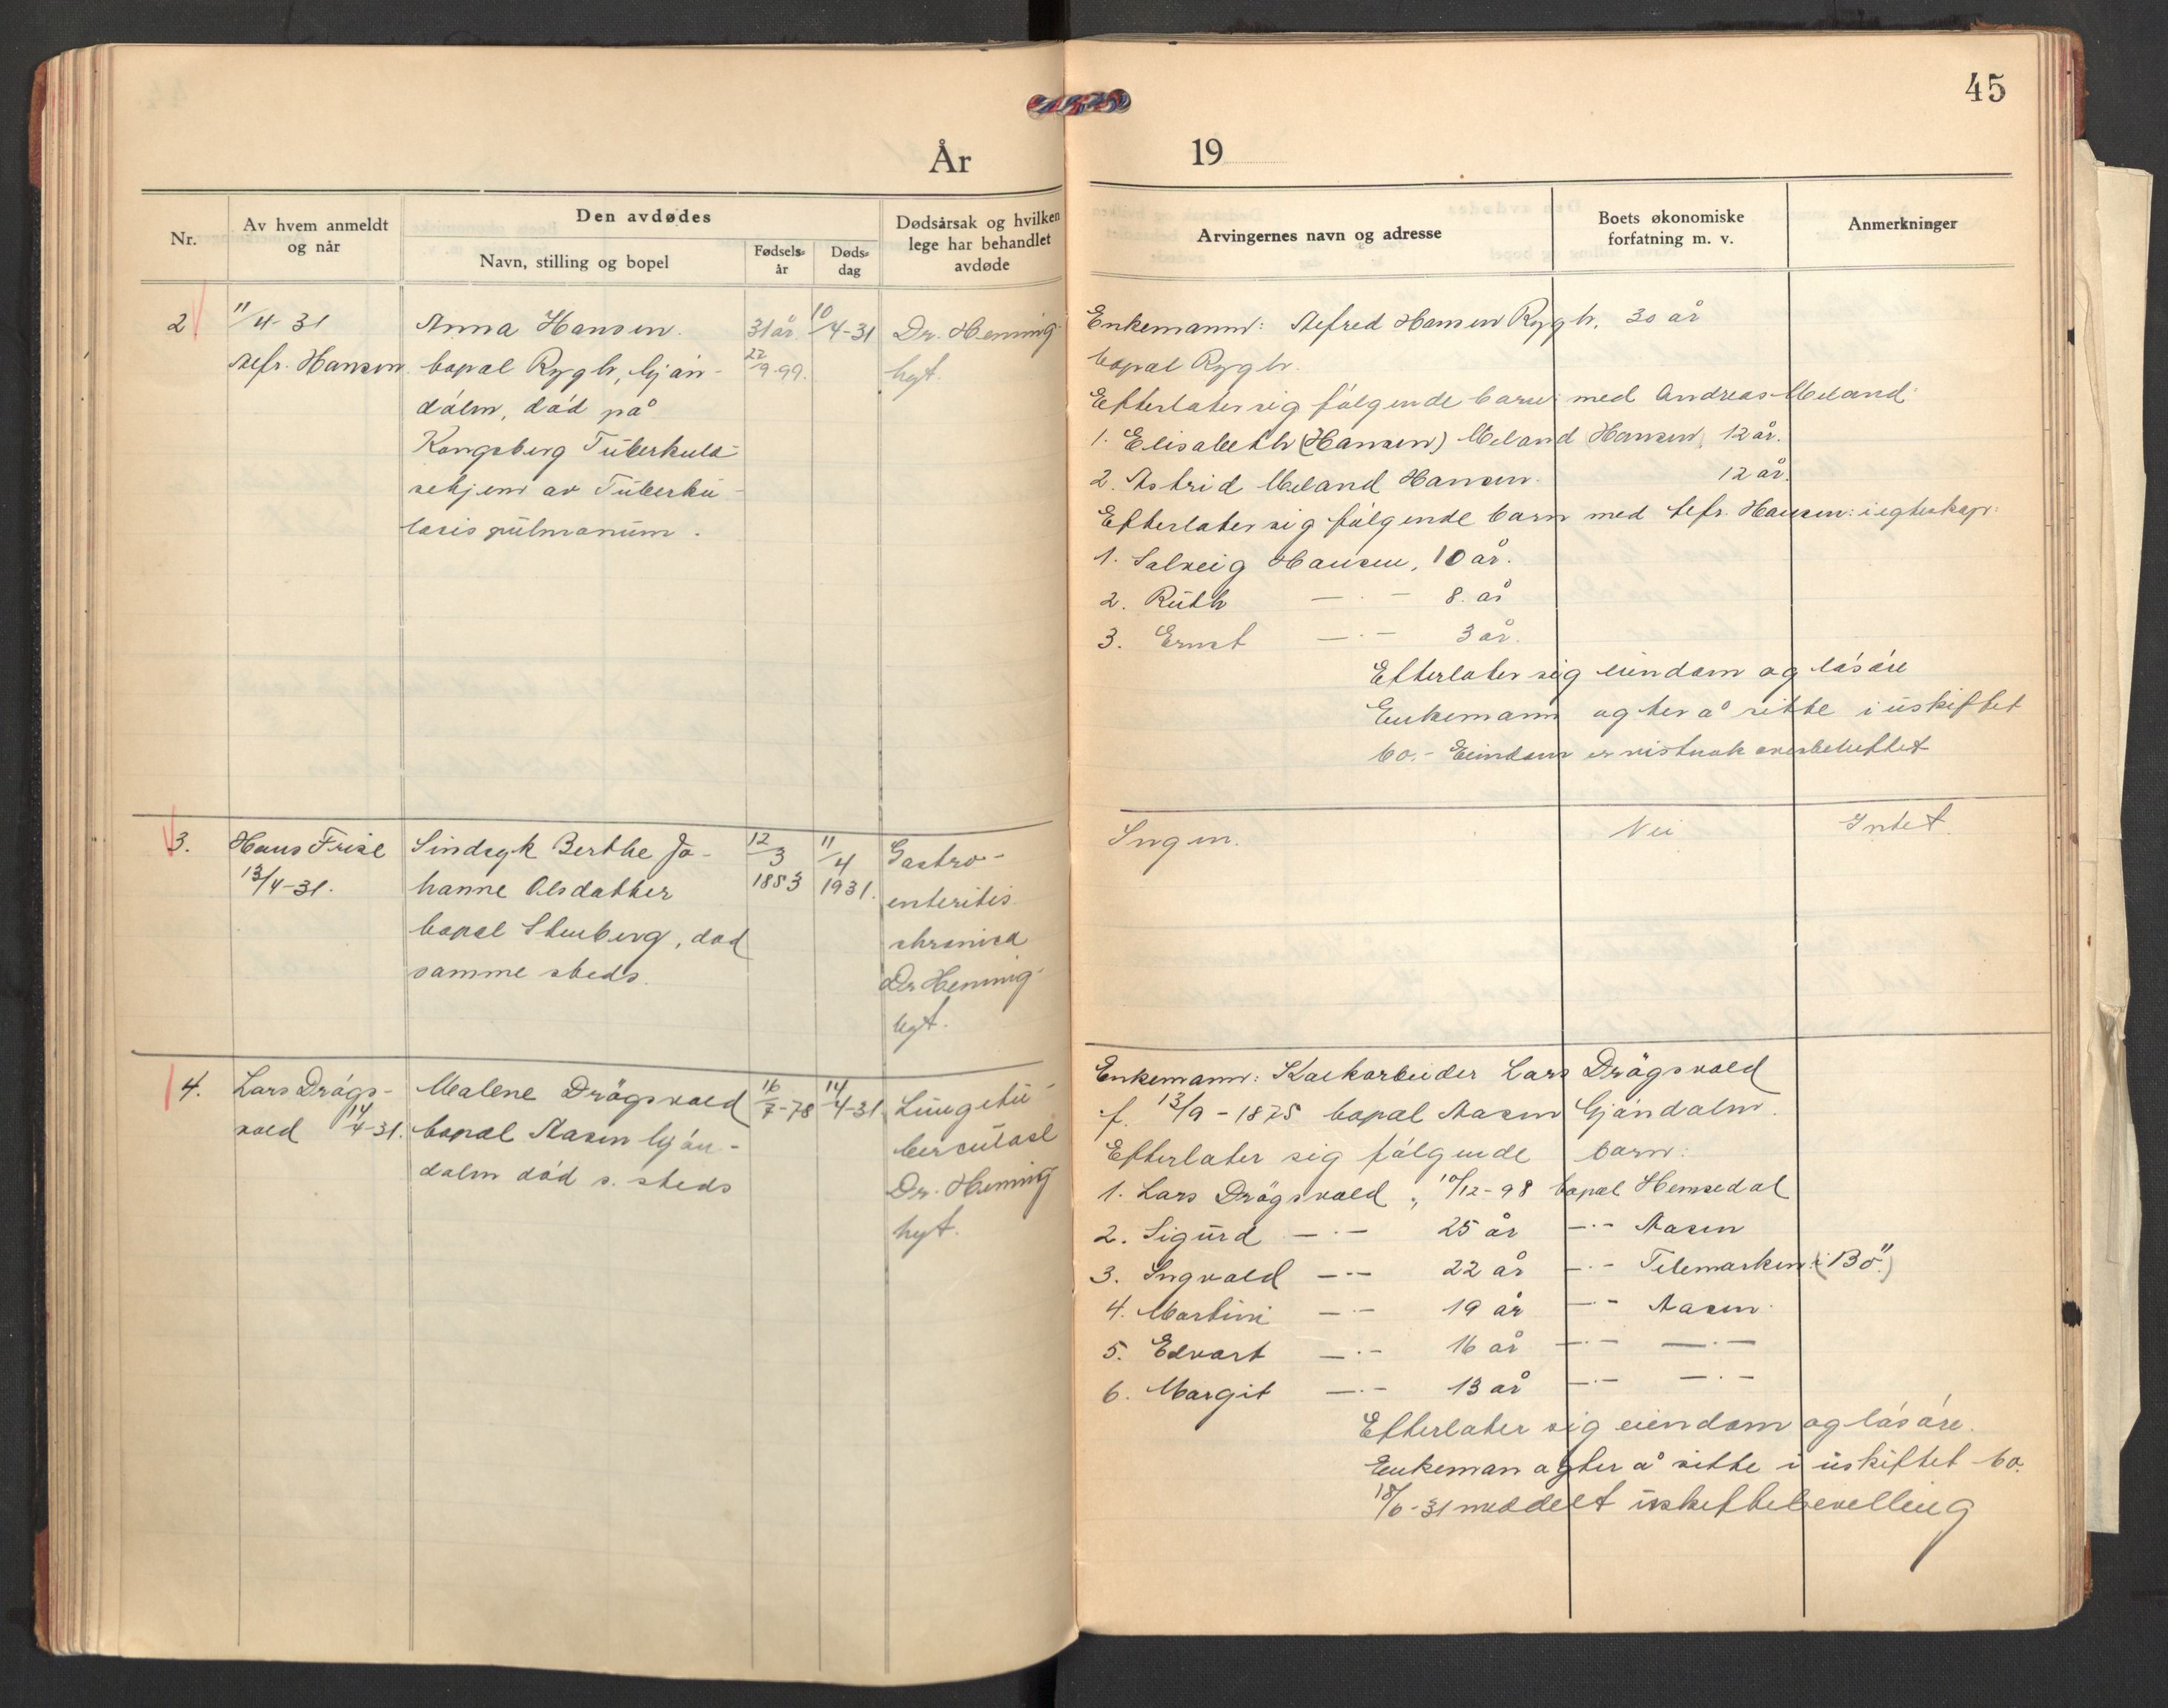 45
År 19
Nr.
Av hvem anmeldt
og når
Den avdødes
Navn, stilling og bopel
Fødsels-
år
Døds-
dag
Dødsårsak og hvilken
lege har behandlet
avdøde
Arvingernes navn og adresse
Boets økonomiske
forfatning m. v.
Anmerkninger
2
11/4-31
Alfr. Hansen
Anna Hansen.
bopæl Rygh, Gjøn-
dalen, død på
Kongsberg Tuberkulo-
sehjem av Tuberku-
losis pulmonum.
31 år
22/9-99.
10/4-31
Dr. Henning-
hyt.
Enkemann: Alfred Hansen Rygh, 30 år
bopæl Rygh.
Efterlater sig følgende barn med Andreas Meland:
1. Elisabeth (Hansen) Meland Hansen, 12 år.
2. Astrid Meland Hansen. 12 år.
Efterlater sig følgende barn med Alfr. Hansen: i egteskap:
1. Solveig Hansen, 10 år.
2. Ruth —·— 8. år
3. Ernst —·— 3 år.
Efterlater sig eiendom og løsøre
Enkemann agter å sitte i uskiftet
bo.- Eiendom er vistnok overbeheftet
3.
Hans Frise
13/4-31.
Sindsyk Berthe Jo-
hanne Olsdatter
bopæl Stenberg, død
samme steds.
12/3
1853
11/4
1931.
Gastro-
enteritis
chronica
Dr Henning-
hyt.
Ingen.
Nei
Intet.
4.
Lars Drågs-
vold 14/4-31.
Malene Drøgsvold
bopæl Aasen Gjøn-
dalen død s. steds
16/7-78
14/4-31
Lungetu-
berculose
Dr. Henning
hyt.
Enkemann: Kalkarbeider Lars Drøgsvold
f. 13/9-1875 bopæl Aasen Gjøndalen.
Efterlater sig følgende barn:
1. Lars Drøgsvold, 10/12-98 bopæl Hemsedal
2. Sigurd —·— 25 år —·— Aasen
3. Ingvald —·— 22 år —·— Telemarken (Bö)
4. Martin —·— 19 år —·— Aasen.
5. Edvart —·— 16 år —·— —·—
6. Margit —·— 13 år —·— —·—
Efterlater sig eiendom og løsøre.
Enkeman agter å sitte i uskiftet bo.
18/6-31 meddelt uskiftebevilling